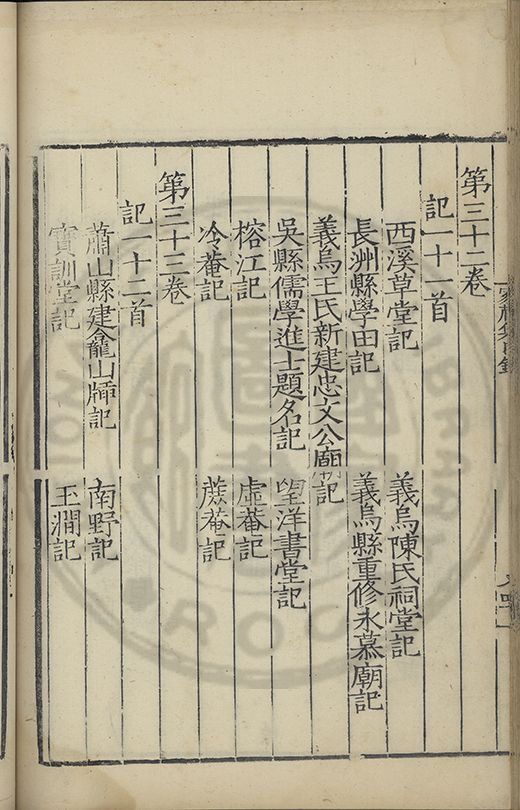 第三十二卷
記一十一首
西溪草堂記　義烏陳氏祠堂記
長洲縣學田記　義烏縣重修永慕廟記
義烏王氏新建忠文公廟記
吳縣儒學進士題名記　望洋書堂記
榕江記　虛菴記
冷菴記　蔗菴記
第三十三卷
記一十二首
蕭山縣建龕山牐記　南野記
寶訓堂記　玉澗記